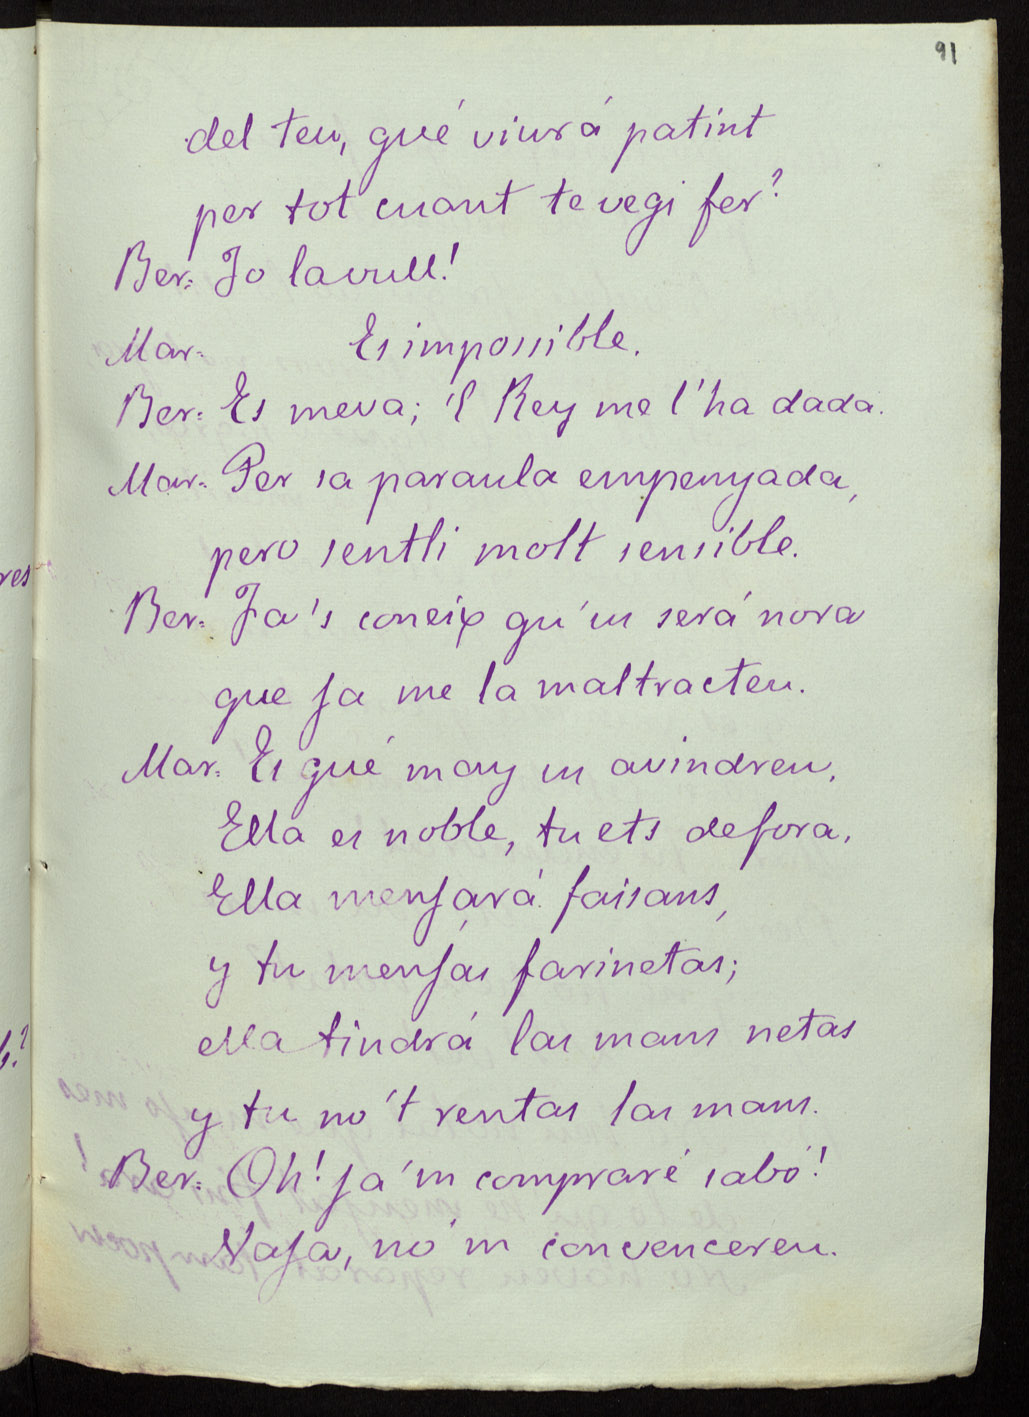 91
del teu, qué viurá patint
per tot cuant te vegi fer?
Ber: Jo la vull!
Mar. Es impossible.
Ber: Es meva; 'l Rey me l'ha dada.
Mar: Per sa paraula empenyada,
pero sentli molt sensible.
Ber: Ja's coneix qu'us será nora
que ja me la maltracteu.
Mar: Es qué may us avindreu.
Ella es noble, tu ets defora.
Ella menjará faisans,
y tu menjas farinetas;
ella tindrá las mans netas
y tu no't rentas las mans.
Ber: Oh! ja'm compraré sabó!
Vaja, no'm convencereu.
res